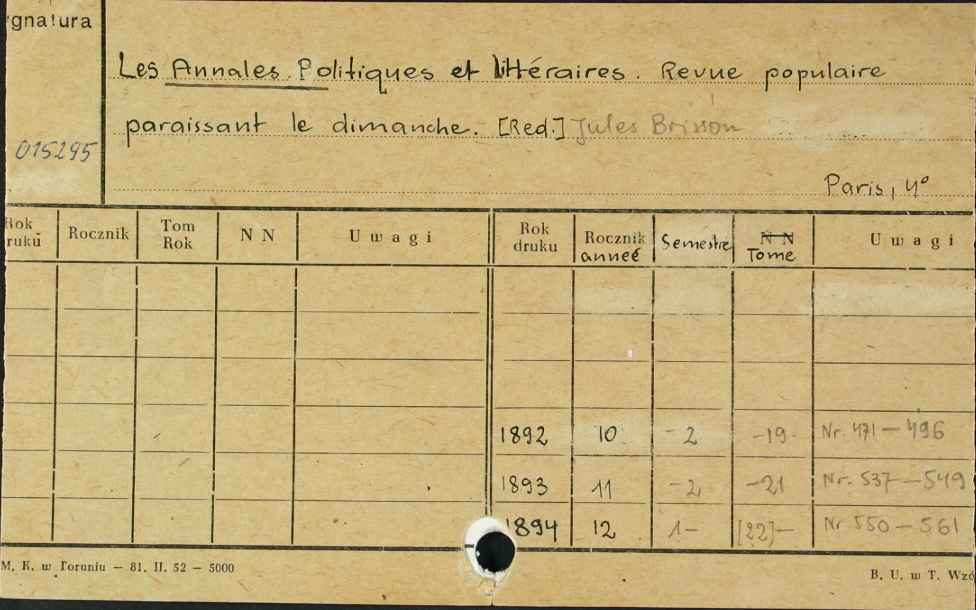 gnatura
Les Annales Politiques et littéraires. Revue populaire
paraissant le dimanche. [Red.] Jules Brisson
015295
Paris, 4°
Rok ruku Rocznik Tom Rok N N Uwagi Rok druku Rocznik anneé Semestre N N Tome Uwagi
1892 10 -2 -19- Nr. 471 — 496
1893 11 -2 -21 Nr. 537 — 549
1894 12 1- [22]- Nr 550 — 561
M. K. w Toruniu — 81. II. 52 — 5000
B. U. w T. Wzó